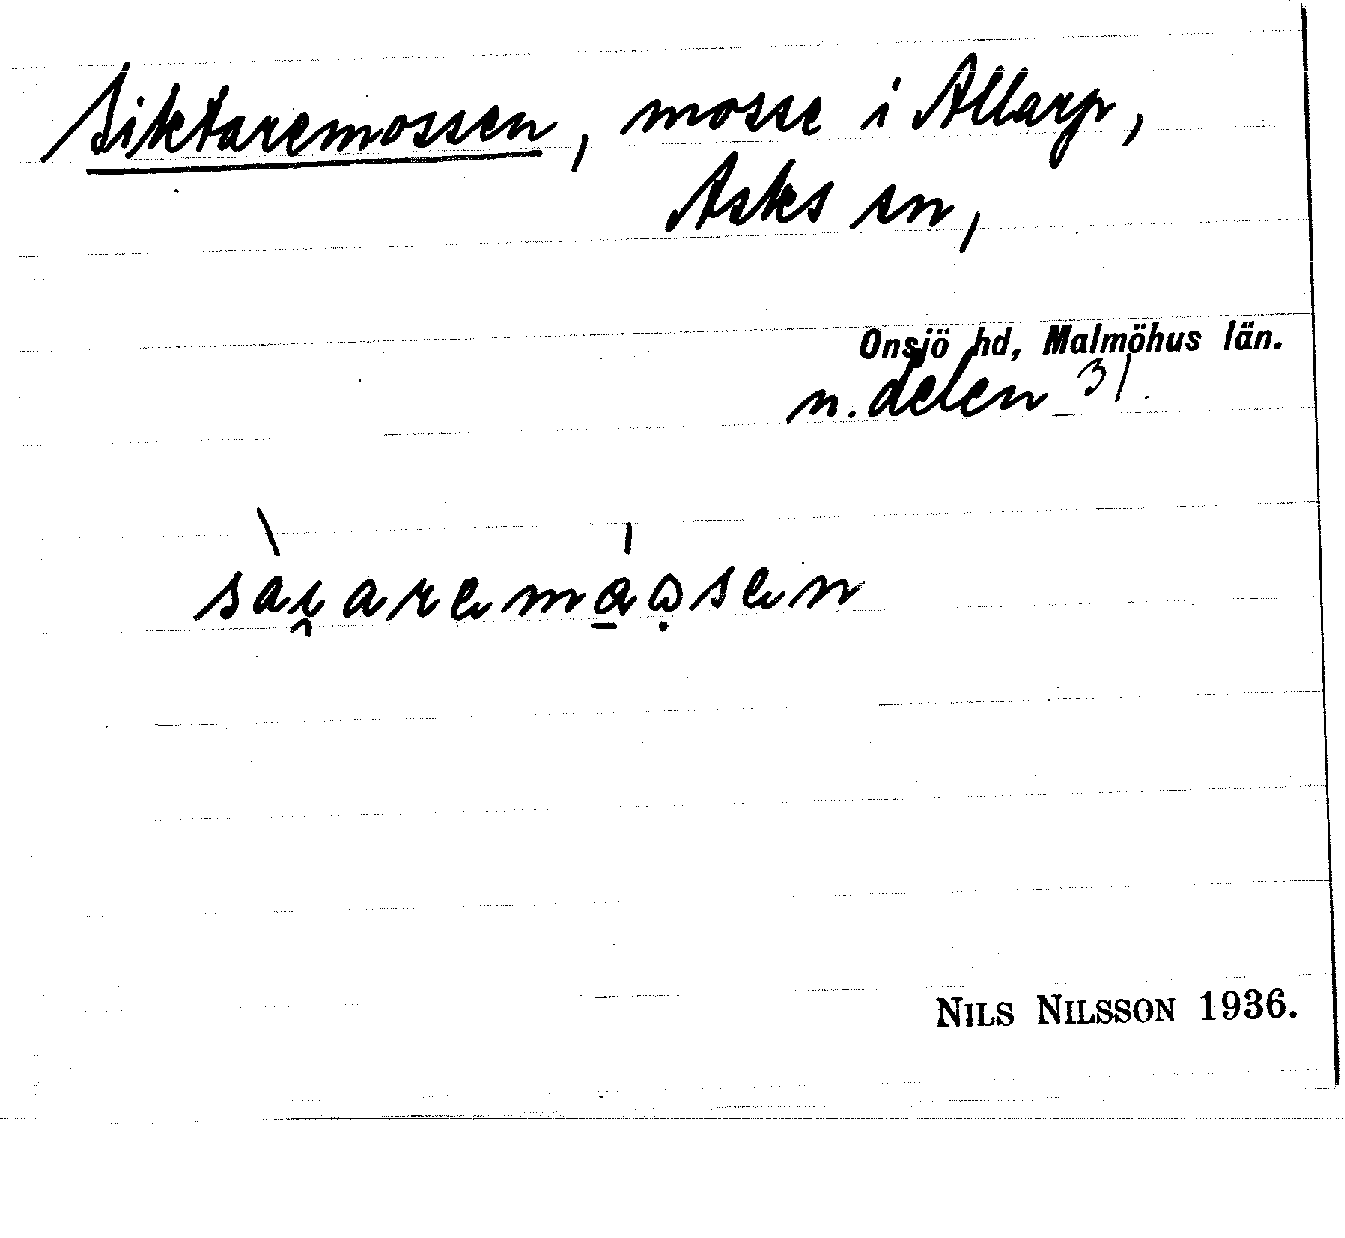 Siktaremossen, mosse i Allarp,
Asks sn,
Onsjö hd, Malmöhus län.
n. delen 31.
NILS NILSSON 1936.